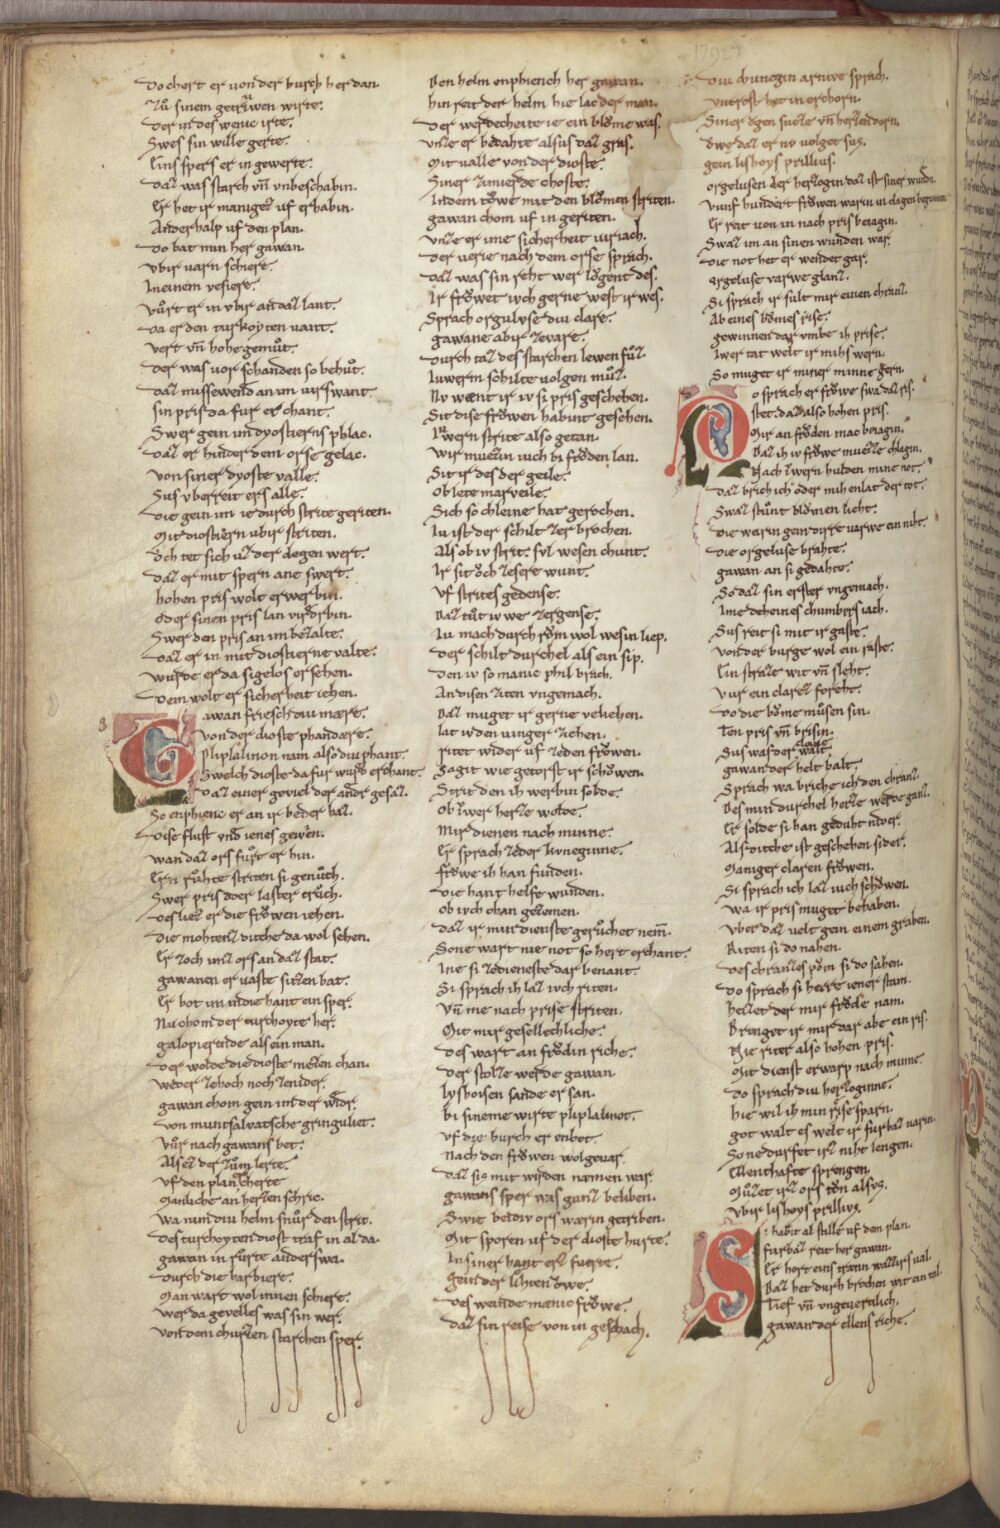 Do chert er von der burch her dan.
Zuͦ sinem getrwen wirte.
Der in des wenic irte.
Swes sin wille gerte.
Eins spers er in gewerte.
Daz was starch vñ vnbeschabin.
Er het ir manigez vf erhabin.
Anderhalp vf den plan.
Do bat min her gawan.
Vbir varn schiere.
In einem vesiere.
Vuͦrt er in vbir an daz lant.
Da er den turkoyten vant.
Vert vñ hohe gemuͦt.
Der was vor schanden so behuͦt.
Daz missewend an im virswant.
Sin pris da fur er chant.
Swer gein im dyostierns phlac.
Daz er hinder dem orse gelac.
Von siner dyoste valle.
Sus vberreit ers alle.
Die gein im ie durch strite geriten.
Mit diostiern vbir striten.
Oͮch tet sich vz der degen wert.
Daz er mit spern ane swert.
Hohen pris wolt erwerbin.
Oder sinen pris lan virderbin.
Swer den pris an im bezalte.
Daz er in mit diostierne valte.
Wurde er da sigelos er sehen.
Dem wolt er sicherheit iehen.
Gawan friesch diu mære.
Von der dioste phandære.
Pliplalinon nam also diu phant.
Swelch dioste da fur wart erchant.
Daz einer geviel der andr gesaz.
So enphienc er an ir beder haz.
Dise flust vnd ienes gewin.
Wan daz ors fuͦrt er hin.
Ern ruͦhte striten si genuͦch.
Swer pris oder laster truͦch.
Des liez er die froͮwen iehen.
Die mohtenz dicche da wol sehen.
Er zoch imz ors an daz stat.
Gawanen er vaste sitzen bat.
Er bot im in die hant ein sper.
Nu chom der turchoyte her.
Galopierende als ein man.
Der wolde die dioste mezen chan.
Weder zehoch noch zenider.
Gawan chom gein im der wider.
Von muntsalvatsche gringuliet.
Vuͦr nach gawans bet.
Als ez der zuͦm lerte.
Vf den plan er cherte
Manliche an herzen schric.
Wa nun diu helm snuͦr den stric.
Des turchoyten diost traf in al da.
Gawan in ruͦrte anderswa.
Durch die barbiere.
Man wart wol innen schiere.
Wer da gevelles was sin wer.
Von dem churzen starchen sper.
Den helm enphiench her gawan.
Hin reit der helm hie lac der man.
Der werdecheite ie ein bloͮme was.
Vnze er bedahte alsus daz gras.
Mit valle von der dioste.
Siner zimierde choste.
In dem toͮwe mit den bloͮmen striten.
Gawan chom vf in geriten.
Vnze er ime sicherheit viriach.
Der verie nach dem orse sprach.
Daz was sin reht wer loͮgent des.
Ir froͮwet iuch gerne west ir wes.
Sprach orguluse diu clare.
Gawane abir zevare.
Durch daz des starchen lewen fuͦz.
In iwerm schilte volgen muͦz.
Nv wænt ir iv si pris geschehen.
Sit dise froͮwen habint gesehen.
Iwern strite also getan.
Wir muͤzin iuch bi froͮden lan.
Sit ir des der geile.
Ob lete marveile.
Sich so chleine hat gerochen.
Iu ist der schilt zer brochen.
Als ob iv strit. svl wesen chunt.
Ir sit oͮch zesere wunt.
Vf strites gedense.
Daz tuͦt iv we zer gense.
Iu mach durch roͮm wol wesin liep.
Der schilt durchel als ein sip.
Den iv so manic phil brach.
An disen ziten vngemach.
Daz muget ir gerne vliehen.
Lat iv den vinger ziehen.
Ritet wider vf zeden froͮwen.
Sagit wie getorst ir schoͮwen.
Strit den ih werbin solde.
Ob iwer herze wolde.
Mir dienen nach minne.
Er sprach zeder kuneginne.
Froͮwe ih han funden.
Die hant helfe wunden.
Ob iuch chan gezemen.
Daz ir mir dienste geruͦchet nem̄.
Sone wart nie not so hert erchant.
Ine si zedieneste dar benant.
Si sprach ih laz iuch riten.
Vñ me nach prise striten.
Mit mir geselleclliche.
Des wart an froͮdin riche.
Der stolze werde gawan
Lyshoisen sande er san.
Bi sineme wirte pliplalinot.
Vf die burch er enbot.
Nach den froͮwen wolgevar.
Daz sis mit wirden namen war.
Gawans sper was ganz beliben.
Swie bediv ors warin getriben.
Mit sporen vf der dioste hurte.
In siner hant erz fuerte.
Gein der liehten oͮwe.
Des weinde manic froͮwe.
Daz sin reise von in geschach.
Diu chunegin arnive sprach.
Vnt rost het in erchorn.
Siner oͮgen suͤze vñ herzen dorn.
Owe daz er nv volget sus.
Gein lishoys prillius.
Orgelusen der herzogin daz ist siner wunden.
Vunf hundert froͮwen warin in clagen begunnen.
Er reit von in nach pris beiagin.
Swaz im an sinen wunden war.
Die not het er wendet gar.
Orgeluse varwe glanz.
Si sprach ir sult mir einen chranz.
Ab eines boͮmes rise.
Gewinnen dar vmbe ih prise.
Iwer tat welt ir mihs wern.
So muget ir miner minne gern.
Do sprach er froͮwe swa daz ris.
Stet. daz also hohen pris.
Mir an froͮden mac beiagin.
Daz ih iv froͮwe muͤze chlagin.
Nach iwern hulden mine not.
Daz brich ich oder mih enlat der tot.
Swaz stuͦnt bloͮmen lieht.
Die warin gein dirre varwe ein niht.
Die orgeluse brahte.
Gawan an si gedahte.
So daz sin erster vngemach.
Ime deheines chumbers iach.
Sus reit si mit ir gaste.
Von der burge wol ein raste.
Ein straze wit vñ sleht.
Vur ein clarez foreht.
Do die boͮme muͦsen sin.
Ten pris vñ brisin.
Sus was der clarie walt.
Gawan der helt balt.
Sprach wa briche ich den chranz.
Des min durchel herze werde ganz.
Er solde si han geduht nider.
Als dicche ist geschehen sider.
Maniger claren froͮwen.
Si sprach ich laz iuch schoͮwen.
Wa ir pris muget behaben.
Vber daz velt gein einem graben.
Riten si do nahen.
Des chranzes poͮm si do sahen.
Do sprach si herre iener stam.
Heizet der mir froͮde nam.
Brenget ir mir dar abe ein ris.
Nie riter also hohen pris.
Mit dienst erwarp nach minne.
Do sprach diu herzoginne.
Hie wil ih min reise sparn.
Got walt es welt ir furbaz varin.
Sone durfet irz niht lengen.
Ellenthafte sprengen.
Muͦzet irz ors tuͦn alsus.
Vbir lishoys prillius.
Si habit al stille vf dem plan.
Furbaz reit her gawan.
Er hort eins træhen wazzirs val.
Daz het durch brochen wit ein tal.
Tief vñ vngevertlich.
Gawan der ellens riche.